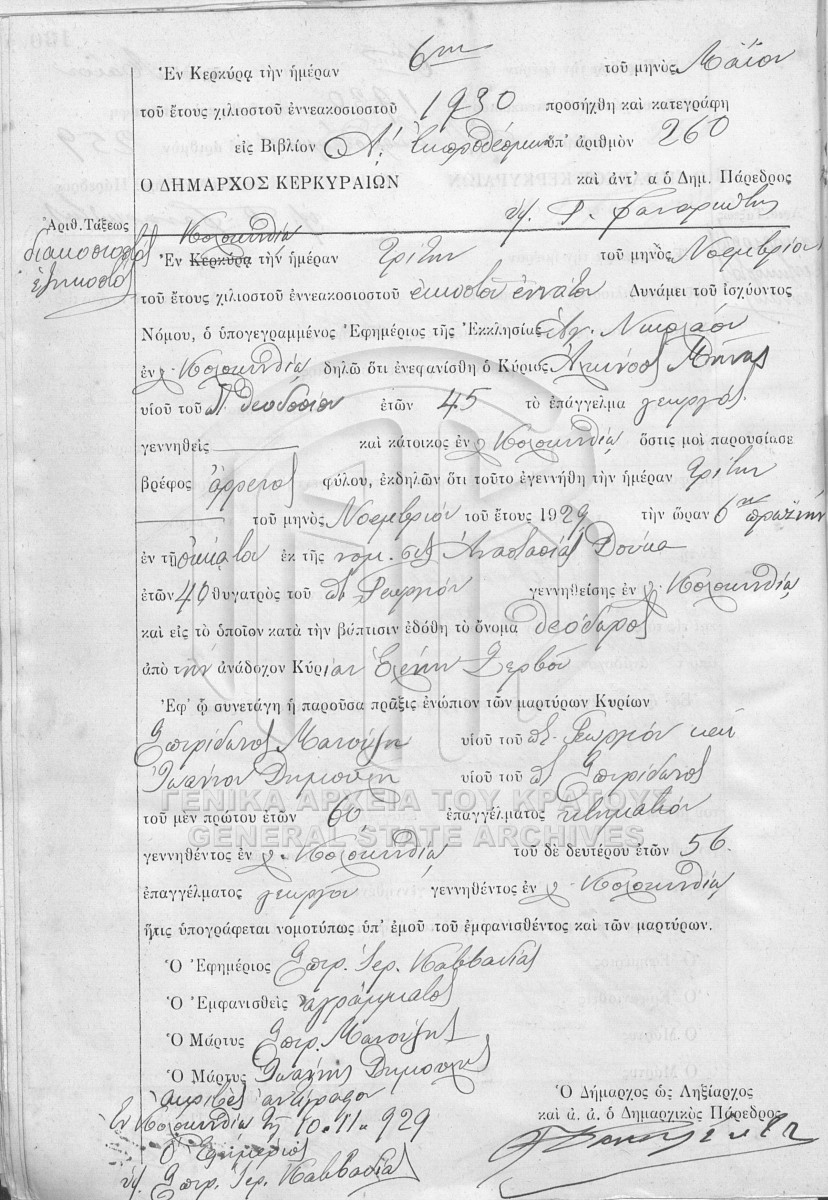 Ἐν Κερκύρᾳ τὴν ἡμέραν 6ην τοῦ μηνὸς Μαΐου
τοῦ ἔτους χιλιοστοῦ ἐννεακοσιοστοῦ 1930 προσήχθη καὶ κατεγράφη
εἰς Βιβλίον Α! Ἐκπροθέσμων ὑπ' ἀριθμὸν 260
Ο ΔΗΜΑΡΧΟΣ ΚΕΡΚΥΡΑΙΩΝ καὶ ἀντ' α ὁ Δημ. Πάρεδρος
Ἀριθ. Τάξεως
διακοσιοστὸς
ἑξηκοστὸς
Κολοκυνθίᾳ
Ἐν Κερκύρᾳ τὴν ἡμέραν Τρίτην τοῦ μηνὸς Νοεμβρίου
τοῦ ἔτους χιλιοστοῦ ἐννεακοσιοστοῦ εἰκοστοῦ ἐννάτου Δυνάμει τοῦ ἰσχύοντος
Νόμου, ὁ ὑπογεγραμμένος Ἐφημέριος τῆς Ἐκκλησίας Ἁγ. Νικολάου
ἐν χ. Κολοκυνθίᾳ δηλῶ ὅτι ἐνεφανίσθη ὁ Κύριος Ἀλκίνοος Μῆνας
υἱοῦ τοῦ π. Θεοδοσίου ἐτῶν 45 τὸ ἐπάγγελμα γεωργὸς
γεννηθεὶς καὶ κάτοικος ἐν χ. Κολοκυνθίᾳ ὅστις μοὶ παρουσίασε
βρέφος ἄρρενος φύλου, ἐκδηλῶν ὅτι τοῦτο ἐγεννήθη τὴν ἡμέραν Τρίτην
τοῦ μηνὸς Νοεμβρίου τοῦ ἔτους 1929 τὴν ὥραν 6ην πρωϊνὴν
ἐν τῇ οἰκίᾳ του ἐκ τῆς νομ. συζ. Ἀναστασίας Δούκα
ἐτῶν 40 θυγατρὸς τοῦ π. Γεωργίου γεννηθείσης ἐν χ. Κολοκυνθίᾳ
καὶ εἰς τὸ ὁποῖον κατὰ τὴν βάπτισιν ἐδόθη τὸ ὄνομα Θεόδωρος
ἀπὸ τὴν ἀνάδοχον Κύριαν Ἑλένην Ζερβοῦ
Ἐφ' ᾧ συνετάγη ἡ παροῦσα πρᾶξις ἐνώπιον τῶν μαρτύρων Κυρίων
Σπυρίδωνος Μανούση υἱοῦ τοῦ π. Γεωργίου καὶ
Ἰωάννου Δημούλη υἱοῦ τοῦ π. Σπυρίδωνος
τοῦ μὲν πρώτου ἐτῶν 60 ἐπαγγέλματος κτηματίου
γεννηθέντος ἐν χ. Κολοκυνθίᾳ τοῦ δὲ δευτέρου ἐτῶν 56.
ἐπαγγέλματος γεωργοῦ γεννηθέντος ἐν χ. Κολοκυνθίᾳ
ἥτις ὑπογράφεται νομοτύπως ὑπ' ἐμοῦ τοῦ ἐμφανισθέντος καὶ τῶν μαρτύρων.
Ὁ Ἐφημέριος Σπυρ. Ἱερ. Καββαδίας
Ὁ Ἐμφανισθεὶς ἀγράμματος
Ὁ Μάρτυς Σπυρ. Μανούσης
Ὁ Μάρτυς Ἰωάννης Δημούλης
Ἀκριβὲς ἀντίγραφον
Ἐν Κολοκυνθίᾳ τῇ 10-11-929
Ὁ Ἐφημέριος
ὑπ. Σπυρ. Ἱερ. Καββαδίας
Ὁ Δήμαρχος ὡς Ληξίαρχος
καὶ ἀ. ἀ. ὁ Δημαρχικὸς Πάρεδρος
ΓΕΝΙΚΑ ΑΡΧΕΙΑ ΤΟΥ ΚΡΑΤΟΥΣ
GENERAL STATE ARCHIVES